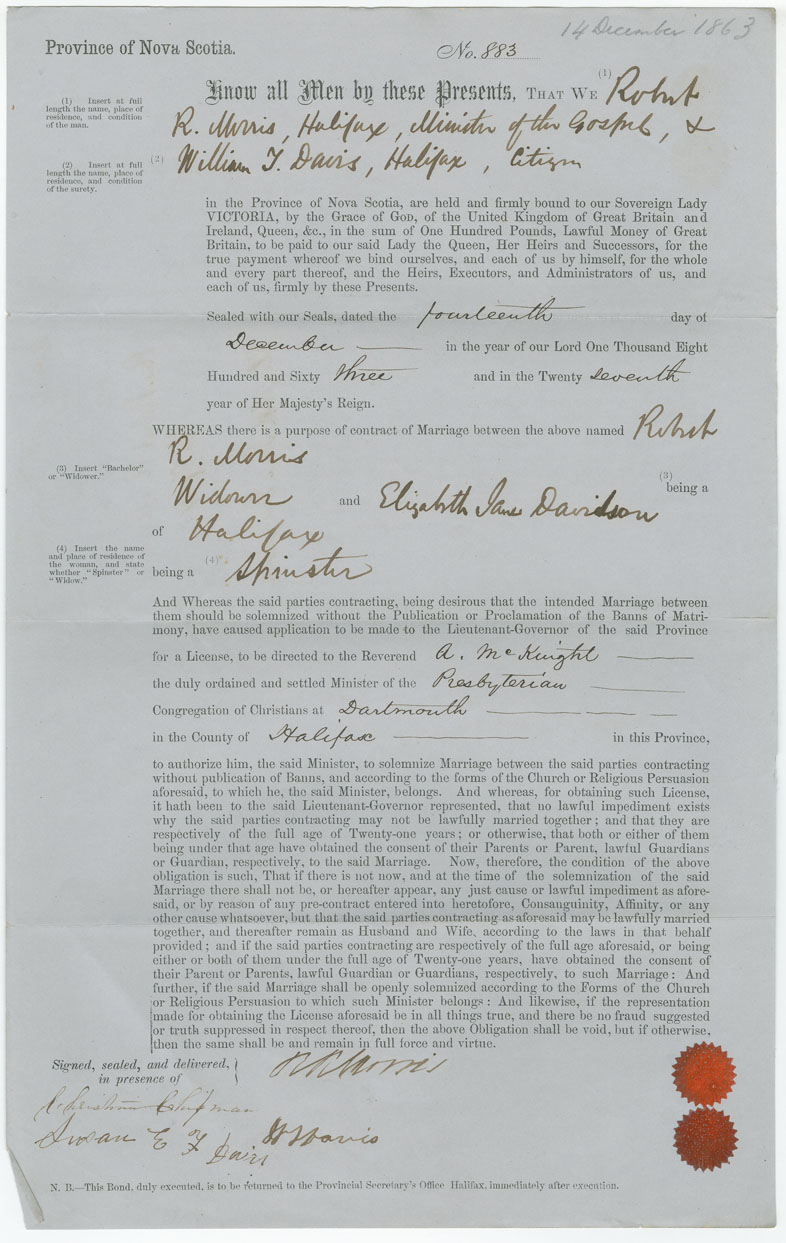 14 December 1863
Province of Nova Scotia.
No. 883
Know all Men by these Presents, THAT WE (1) Robert
(1) Insert at full length the name, place of residence, and condition of the man.
R. Morris, Halifax, Minister of the Gospel, &
(2) William T. Davis, Halifax, Citizen
(2) Insert at full length the name, place of residence, and condition of the surety.
in the Province of Nova Scotia, are held and firmly bound to our Sovereign Lady
VICTORIA, by the Grace of GOD, of the United Kingdom of Great Britain and
Ireland, Queen, &c., in the sum of One Hundred Pounds, Lawful Money of Great
Britain, to be paid to our said Lady the Queen, Her Heirs and Successors, for the
true payment whereof we bind ourselves, and each of us by himself, for the whole
and every part thereof, and the Heirs, Executors, and Administrators of us, and
each of us, firmly by these Presents.
Sealed with our Seals, dated the fourteenth day of
December in the year of our Lord One Thousand Eight
Hundred and Sixty three and in the Twenty seventh
year of Her Majesty's Reign.
WHEREAS there is a purpose of contract of Marriage between the above named Robert
R. Morris
(3) Insert "Bachelor" or "Widower."
(3) being a
Widower and Elizabeth Jane Davidson
of Halifax
(4) Insert the name and place of residence of the woman, and state whether "Spinster" or "Widow."
being a (4) Spinster
And Whereas the said parties contracting, being desirous that the intended Marriage between
them should be solemnized without the Publication or Proclamation of the Banns of Matri-
mony, have caused application to be made to the Lieutenant-Governor of the said Province
for a License, to be directed to the Reverend A. McKnight
the duly ordained and settled Minister of the Presbyterian
Congregation of Christians at Dartmouth
in the County of Halifax in this Province,
to authorize him, the said Minister, to solemnize Marriage between the said parties contracting
without publication of Banns, and according to the forms of the Church or Religious Persuasion
aforesaid, to which he, the said Minister, belongs. And whereas, for obtaining such License,
it hath been to the said Lieutenant-Governor represented, that no lawful impediment exists
why the said parties contracting may not be lawfully married together; and that they are
respectively of the full age of Twenty-one years; or otherwise, that both or either of them
being under that age have obtained the consent of their Parents or Parent, lawful Guardians
or Guardian, respectively, to the said Marriage. Now, therefore, the condition of the above
obligation is such, That if there is not now, and at the time of the solemnization of the said
Marriage there shall not be, or hereafter appear, any just cause or lawful impediment as afore-
said, or by reason of any pre-contract entered into heretofore, Consanguinity, Affinity, or any
other cause whatsoever, but that the said parties contracting as aforesaid may be lawfully married
together, and thereafter remain as Husband and Wife, according to the laws in that behalf
provided; and if the said parties contracting are respectively of the full age aforesaid, or being
either or both of them under the full age of Twenty-one years, have obtained the consent of
their Parent or Parents, lawful Guardian or Guardians, respectively, to such Marriage: And
further, if the said Marriage shall be openly solemnized according to the Forms of the Church
or Religious Persuasion to which such Minister belongs: And likewise, if the representation
made for obtaining the License aforesaid be in all things true, and there be no fraud suggested
or truth suppressed in respect thereof, then the above Obligation shall be void, but if otherwise,
then the same shall be and remain in full force and virtue.
Signed, sealed, and delivered,
in presence of
R R Morris
Christina Chipman
Susan E F Davis
W T Davis
N. B.—This Bond, duly executed, is to be returned to the Provincial Secretary's Office Halifax, immediately after execution.